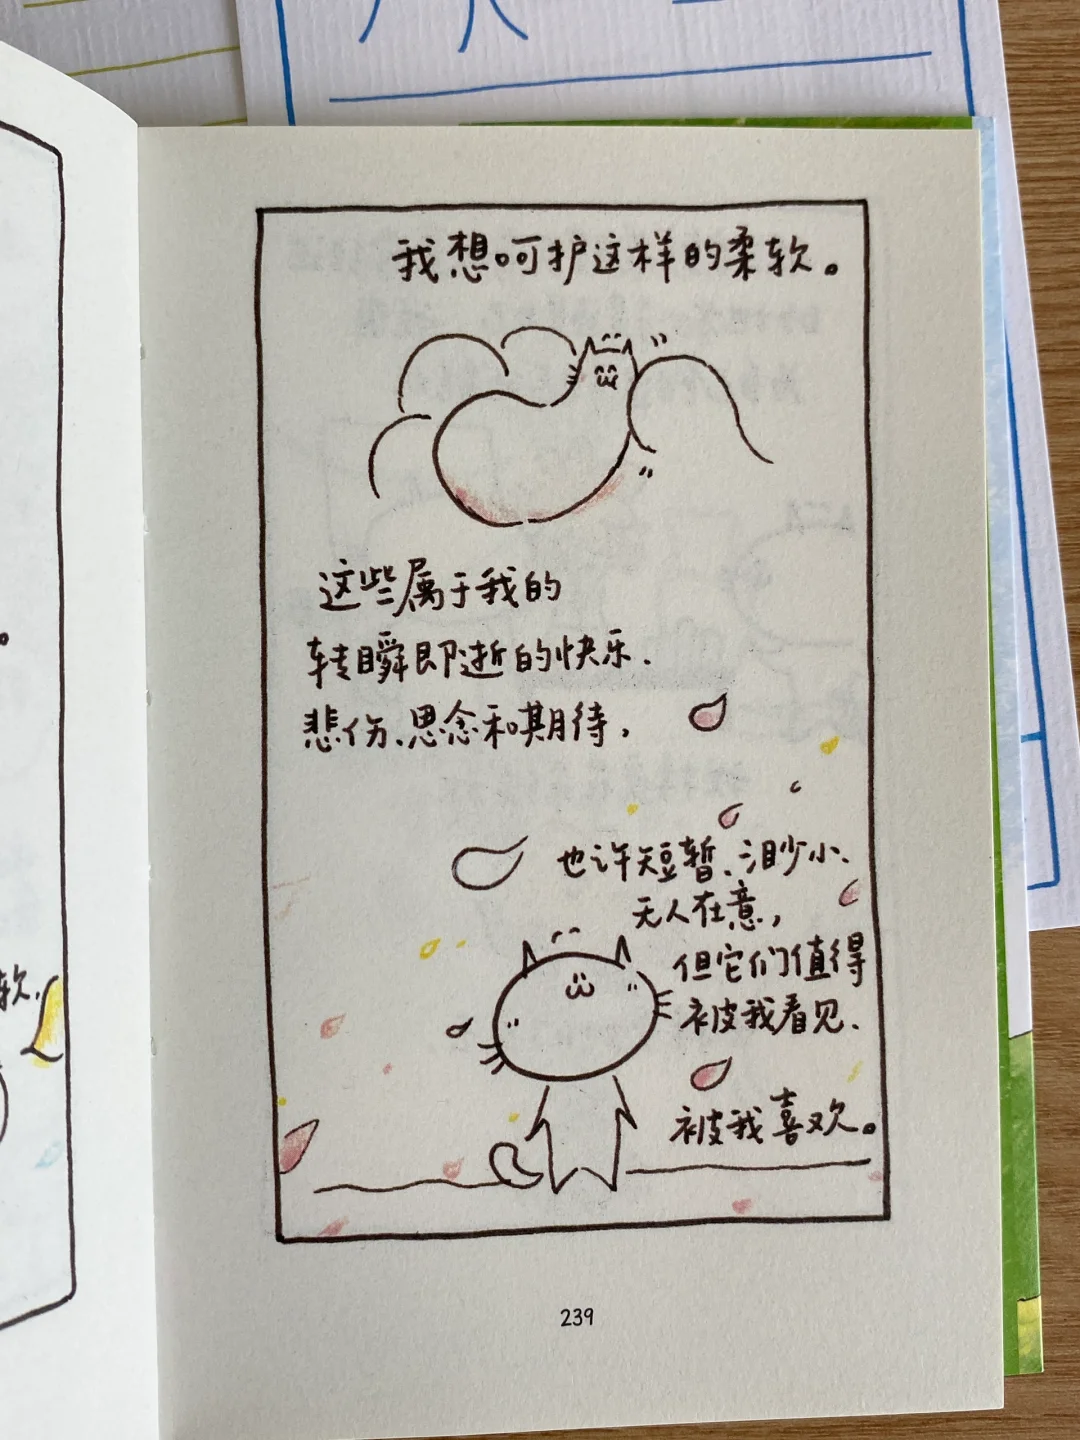 我想呵护这样的柔软。
这些属于我的
转瞬即逝的快乐、
悲伤、思念和期待，
也许短暂、渺小、
无人在意，
但它们值得
被我看见、
被我喜欢。
软，
239